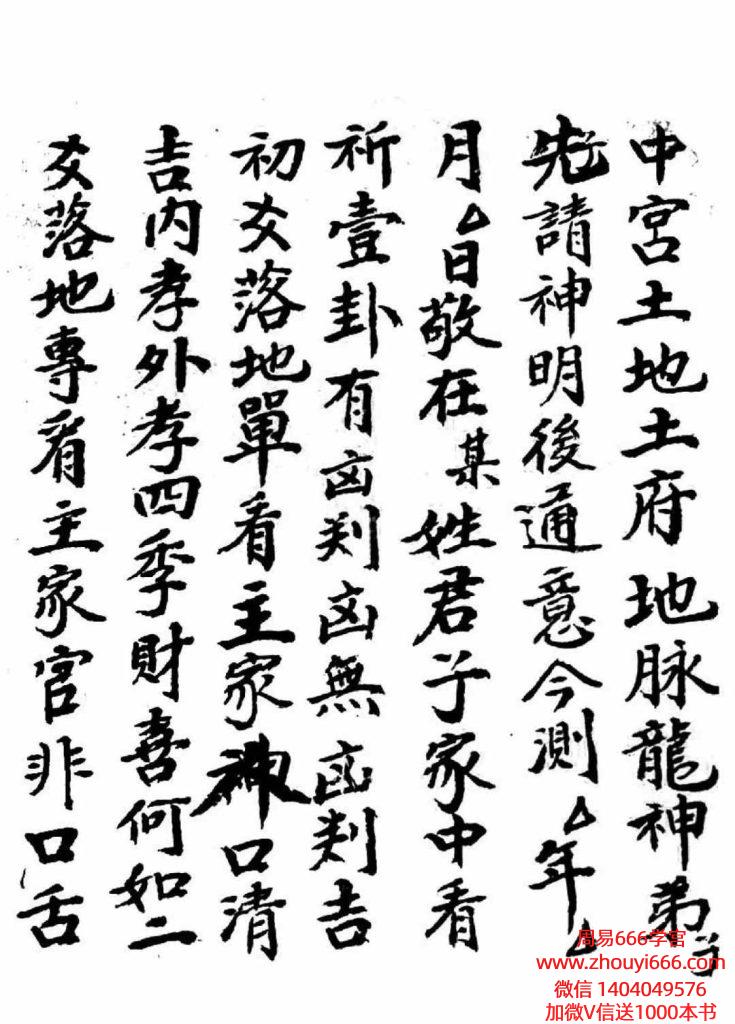 中宮土地土府地脉龍神弟子
先請神明後通意今測△年△
月△日敬在某姓君子家中看
祈壹卦有凶判凶無凶判吉
初爻落地單看主家神口清
吉内孝外孝四季財喜何如二
爻落地專看主家官非口舌
周易666学官
www.zhouyi666.com
微信 1404049576
加微V信送1000本书